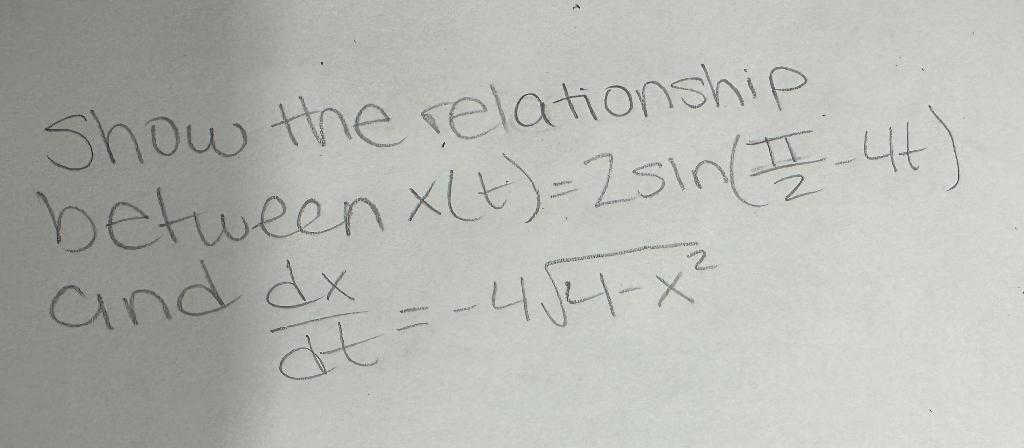 Show the relationship
between x(t)=2sin(π/2-4t)
and dx/dt=-4√(4-x²)